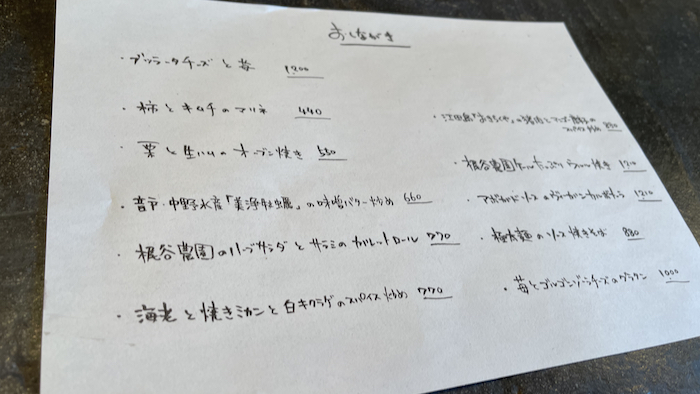 おしながき
・ブッラータチーズと苺 1200
・柿とキムチのマリネ 440
・栗と生ハムのオーブン焼き 550
・音戸・中野水産「美浄牡蠣」の味噌バター炒め 660
・梶谷農園のハーブサラダとサラミのガレットロール 770
・海老と焼きミカンと白キクラゲのスパイス炒め 770
・江田島「の
スパイス炒め 880
・梶谷農園 焼き
・アボカドソースの 1210
・極太麺のソース焼きそば 880
・苺とゴルゴンゾーラチーズのグラタン 1000